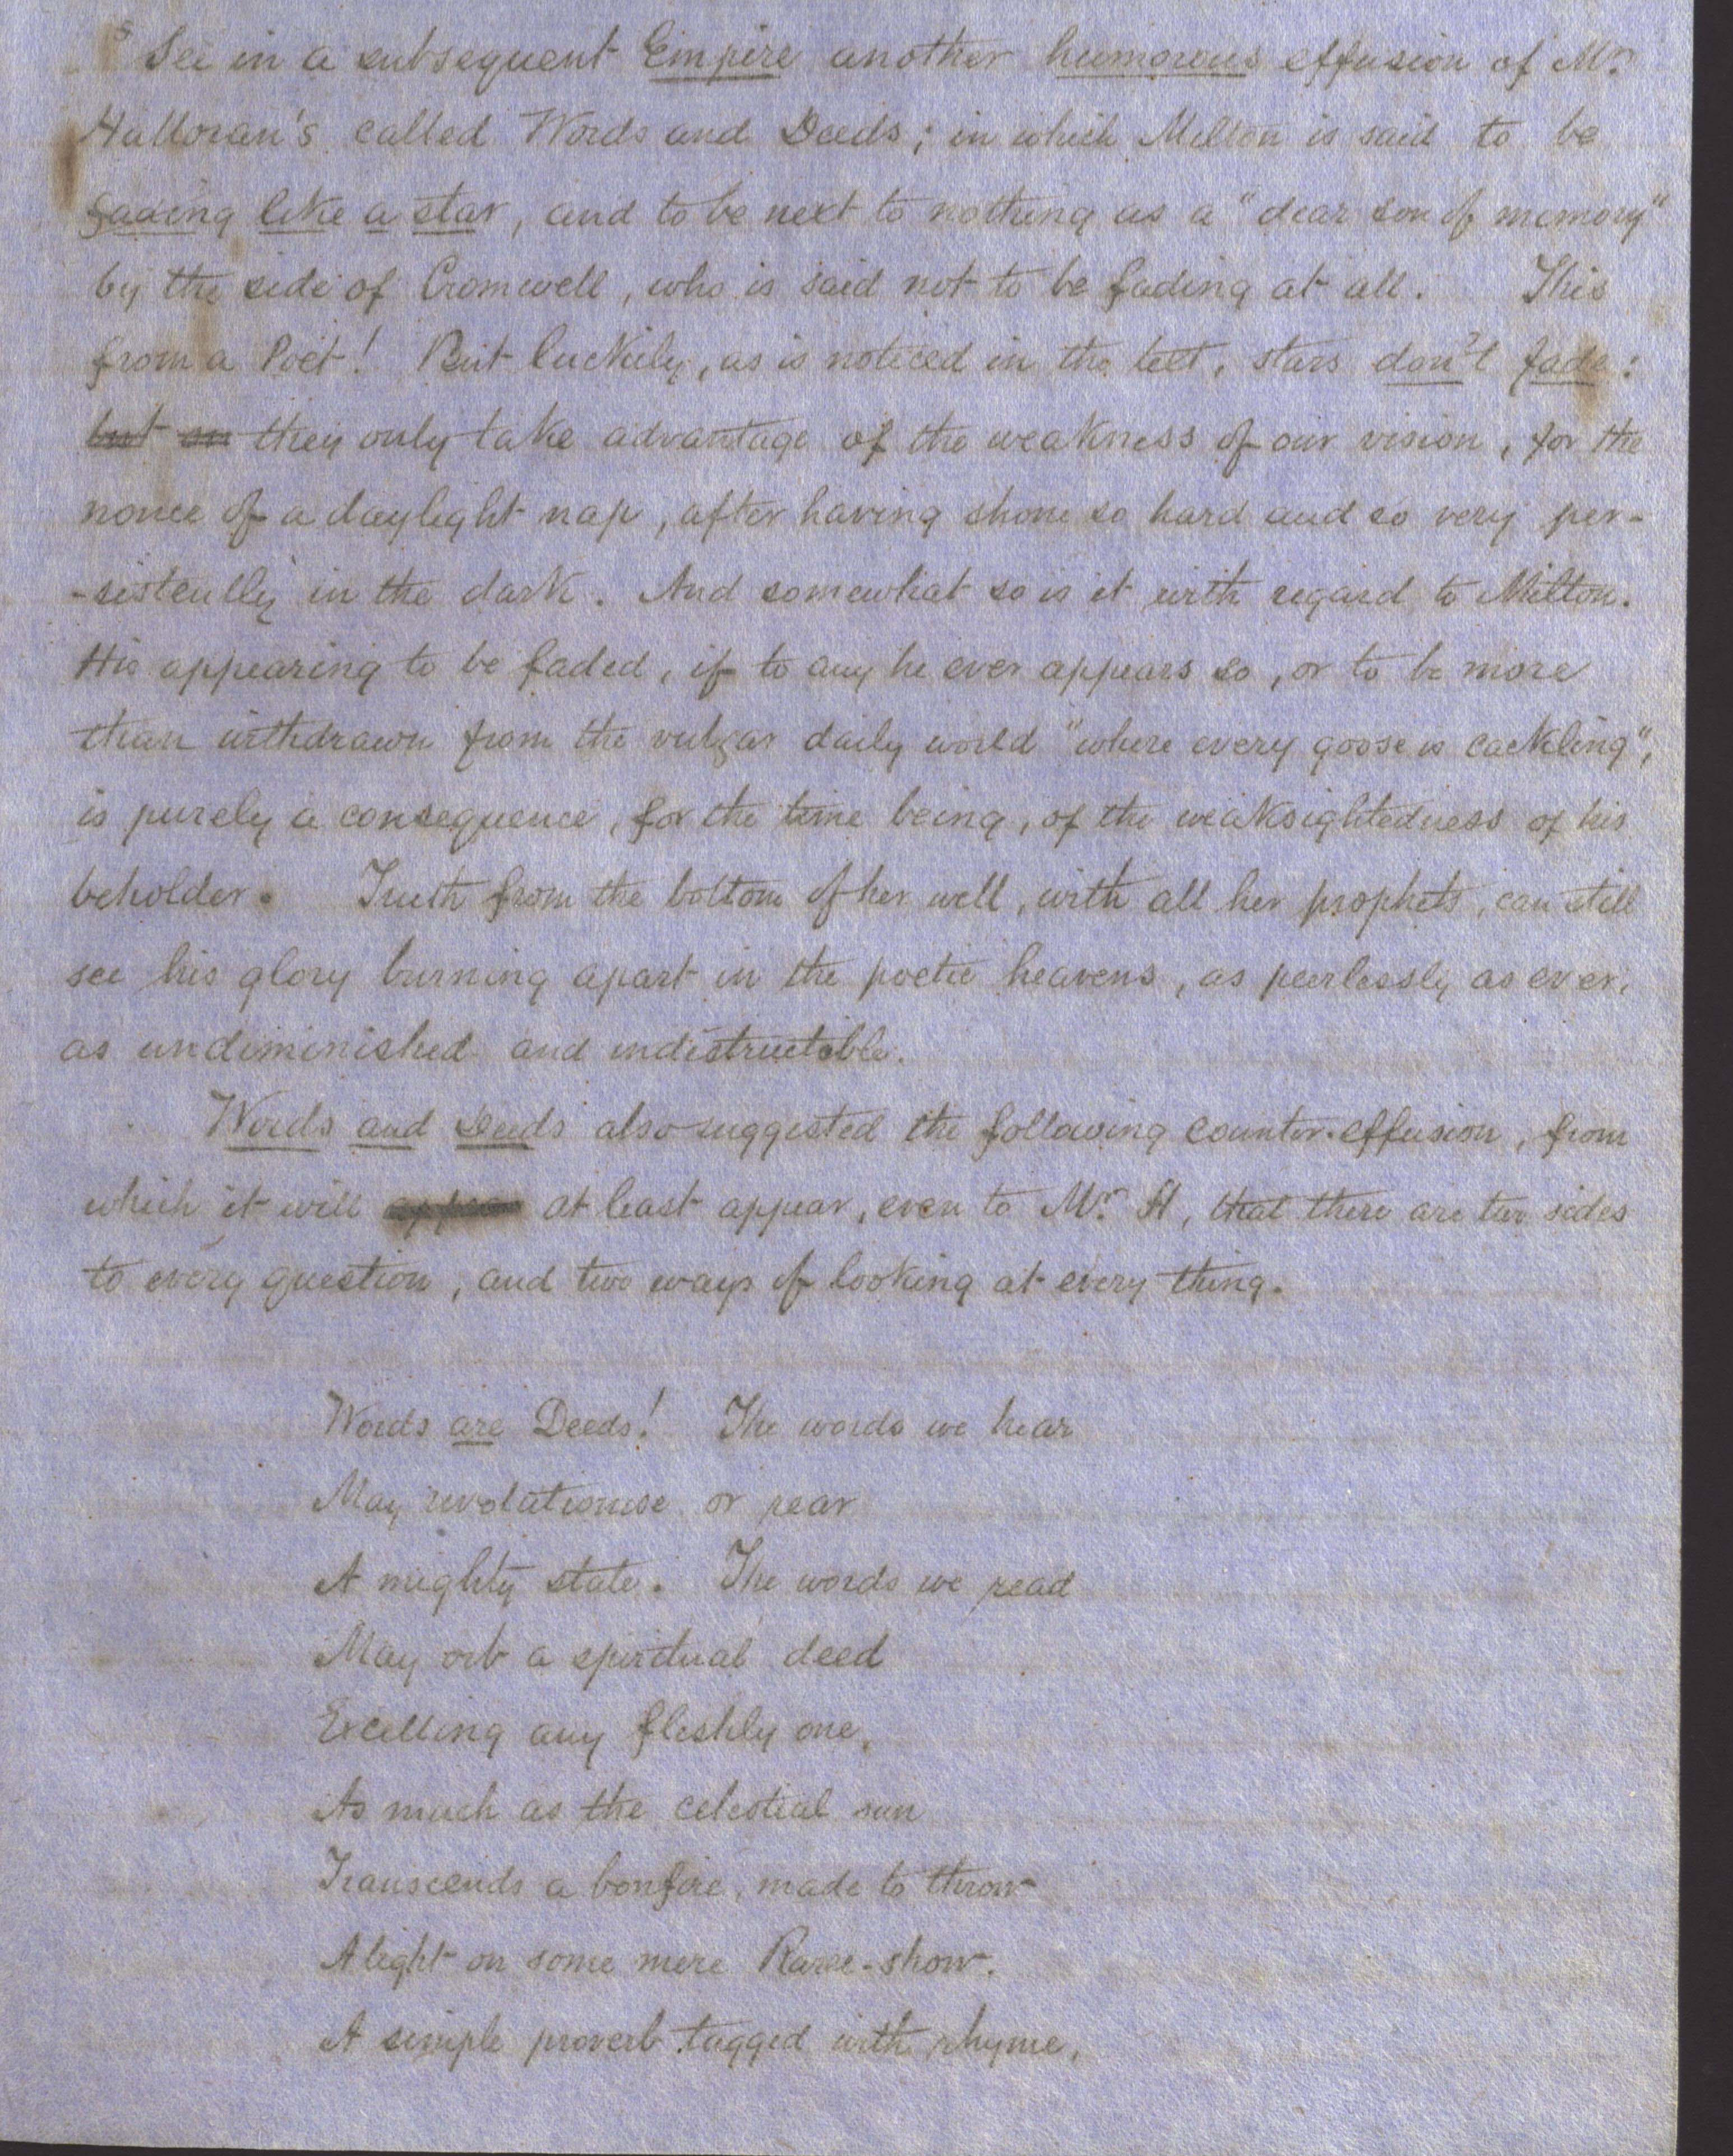 5 See in a subsequent Empire another humorous effusion of Mr.
Halloran's called Words and Deeds; in which Milton is said to be
fading like a star, and to be next to nothing as a "dear son of memory"
by the side of Cromwell, who is said not to be fading at all. This
from a Poet! But luckily, as is noticed in the text, stars don't fade:
but on they only take advantage of the weakness of our vision, for the
nonce of a daylight nap, after having shone so hard and so very per-
-sistently in the dark. And somewhat so is it with regard to Milton.
His appearing to be faded, if to any he ever appears so, or to be more
than withdrawn from the vulgar daily world "where every goose is cackling",
is purely a consequence, for the time being, of the weaksightedness of his
beholder. Truth from the bottom of her well, with all her prophets, can still
see his glory burning apart in the poetic heavens, as peerlessly as ever,
as undiminished and indestructible.
Words and Deeds also suggested the following counter-effusion, from
which it will appear at least appear, even to Mr. H, that there are two sides
to every question, and two ways of looking at every thing.
Words are Deeds! The words we hear
May revolutionise or rear
A mighty state. The words we read
May orb a spiritual deed
Excelling any fleshly one,
As much as the celestial sun
Transcends a bonfire, made to throw
A light on some mere Raree-show.
A simple proverb tagged with rhyme,